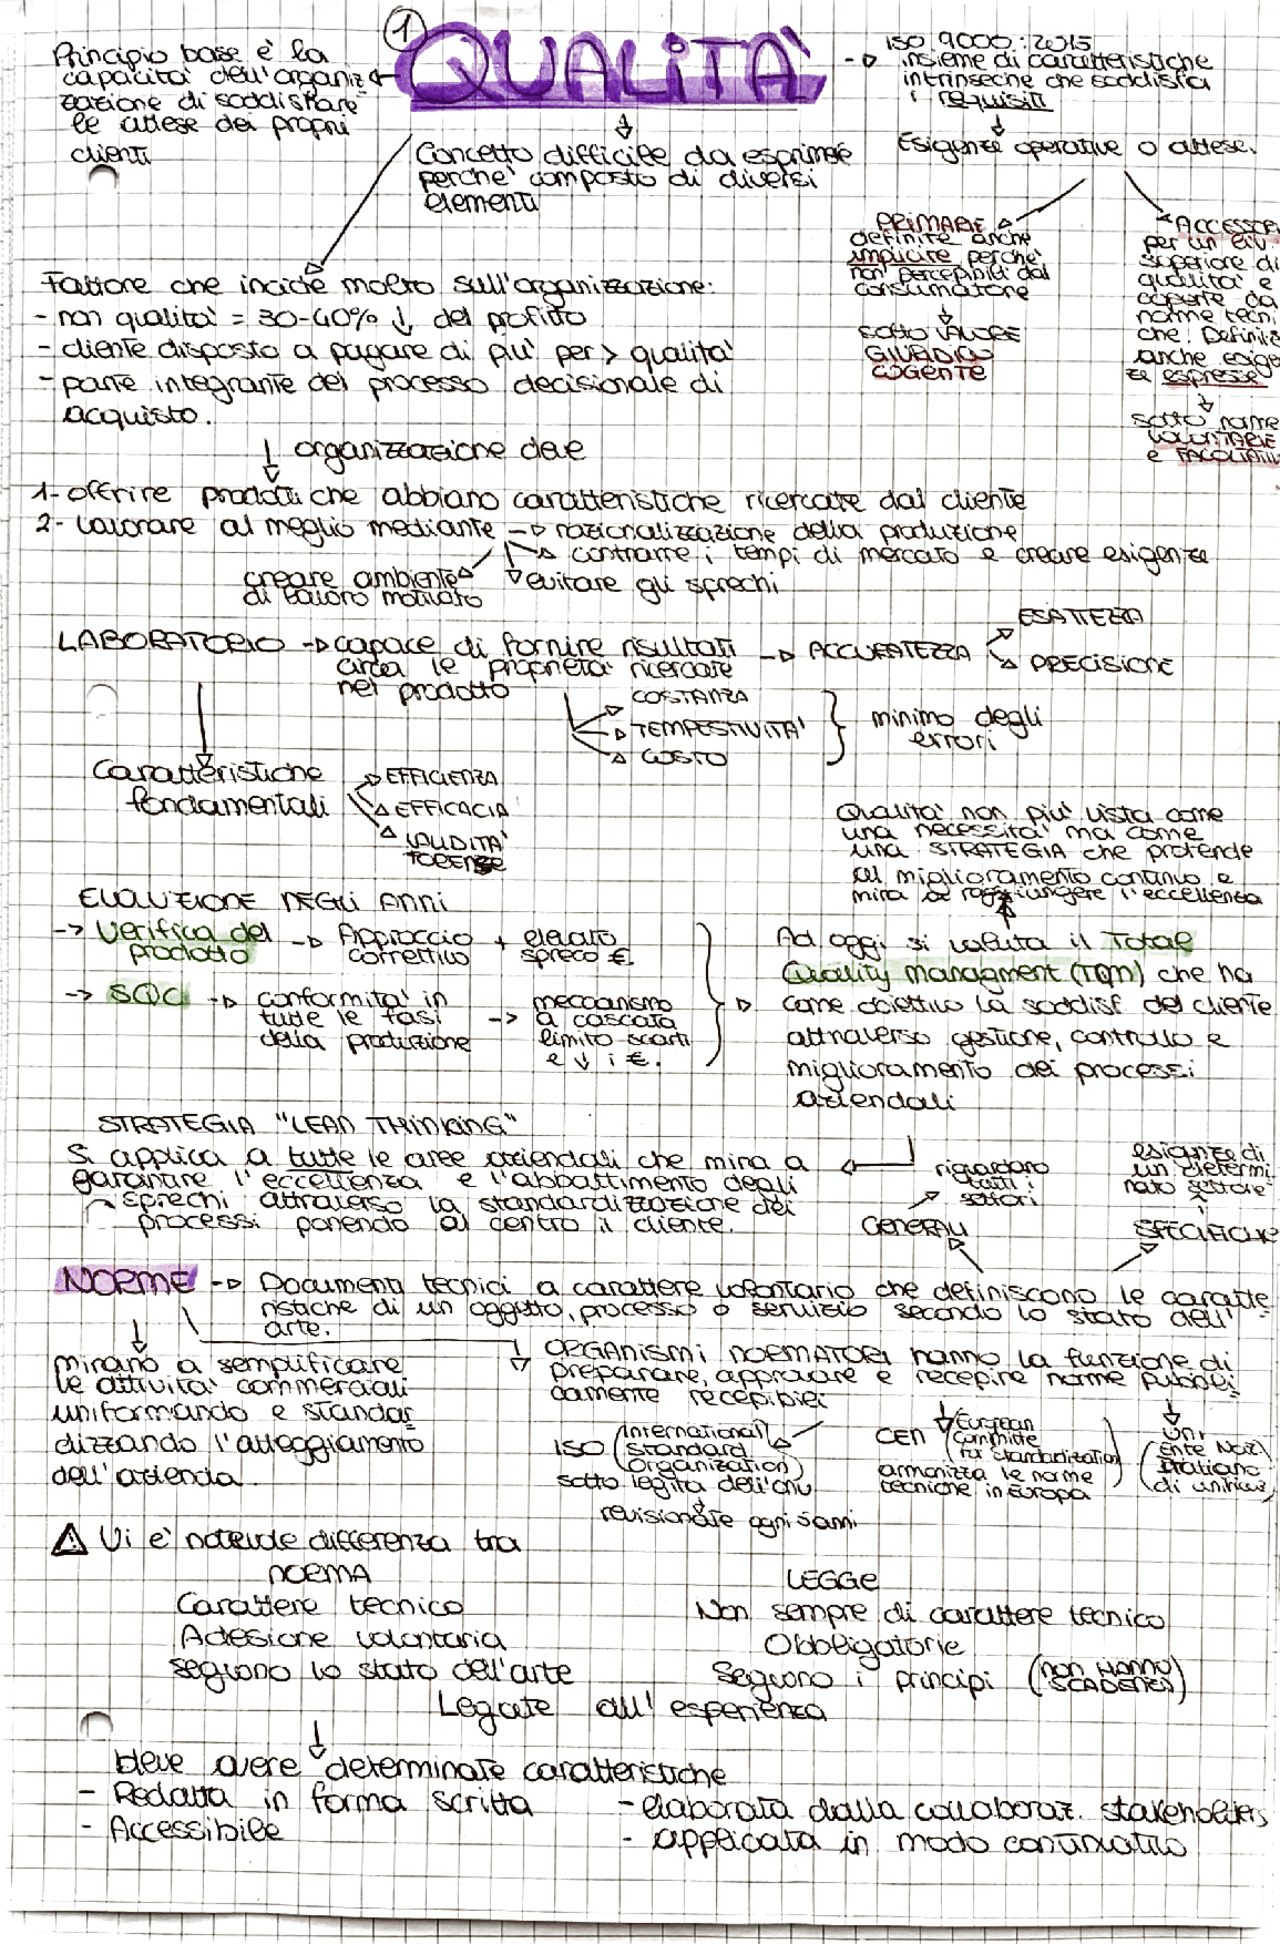 1
QUALITÀ
Principio base è la
capacità dell'organiz
zazione di soddisfare
le attese dei propri
clienti
ISO 9000:2015
insieme di caratteristiche
intrinseche che soddisfa
i requisiti
Esigenze operative o attese.
Concetto difficile da esprimere
perche' composto di diversi
elementi
PRIMARIE
definite anche
implicite perche'
non percepibili dal
consumatore
sotto VALORE
GIURIDICO
COGENTE
ACCESSOR
per un liv.
superiore di
qualita' e
coperte da
norme tecni
che. Definite
anche esige
ze espresse
sotto norme
VOLONTARIE
e FACOLTATIV
Fattore che incide molto sull'organizzazione:
- non qualita' = 30-40% ↓ del profitto
- cliente disposto a pagare di piu' per > qualita'
- parte integrante del processo decisionale di
acquisto.
organizzazione deve
1- offrire prodotti che abbiano caratteristiche ricercate dal cliente
2- lavorare al meglio mediante → razionalizzazione della produzione
contrarre i tempi di mercato e creare esigenze
creare ambiente
di lavoro motivato
evitare gli sprechi
LABORATORIO → capace di fornire risultati
circa le proprieta' ricercate
nel prodotto
→ ACCURATEZZA
ESATTEZZA
PRECISIONE
COSTANZA
TEMPESTIVITA'
COSTO
minimo degli
errori
Caratteristiche
fondamentali
EFFICIENZA
EFFICACIA
VALIDITA'
Qualita' non piu' vista come
una necessita' ma come
una STRATEGIA che pretende
al miglioramento continuo e
mira a raggiungere l'eccellenza
EVOLUZIONE NEGLI ANNI
→ Verifica del
prodotto
→ Approccio
correttivo
+ elevato
spreco €
→ SQC → conformita' in
tutte le fasi
della produzione
→ meccanismo
a cascata
limito scarti
e ↓ i €.
Ad oggi si valuta il Total
Quality Managment (TQM) che ha
come obiettivo la soddisf. del cliente
attraverso gestione, controllo e
miglioramento dei processi
aziendali
STRATEGIA "LEAN THINKING"
Si applica a tutte le aree aziendali che mira a
garantire l'eccellenza e l'abbattimento degli
sprechi attraverso la standardizzazione dei
processi ponendo al centro il cliente.
riguardano
tutti i
settori
GENERALI
esigenze di
un determi
nato settore
SPECIFICHE
NORME → Documenti tecnici a carattere volontario che definiscono le caratte
ristiche di un oggetto, processo o servizio secondo lo stato dell'
arte.
mirano a semplificare
le attivita' commerciali
uniformando e standar
dizzando l'atteggiamento
dell'azienda.
ORGANISMI NORMATORI hanno la funzione di
preparare, approvare e recepire norme pubbli
camente recepibili
ISO (International
Standard
Organization)
sotto legita dell'onu
revisionate ogni 5 anni
CEN (European
Committe
for standardization)
armonizza le norme
tecniche in Europa
UNI
(Ente Naz.
Italiano
di unificaz)
⚠ Vi e' notevole differenza tra
NORMA
Carattere tecnico
Adesione volontaria
seguono lo stato dell'arte
LEGGE
Non sempre di carattere tecnico
Obbligatorie
Seguono i principi (NON HANNO
SCADENZA)
Legate all' esperienza
deve avere determinate caratteristiche
- Redatta in forma scritta
- Accessibile
- elaborata dalla collaboraz. stakeholders
- applicata in modo continuativo